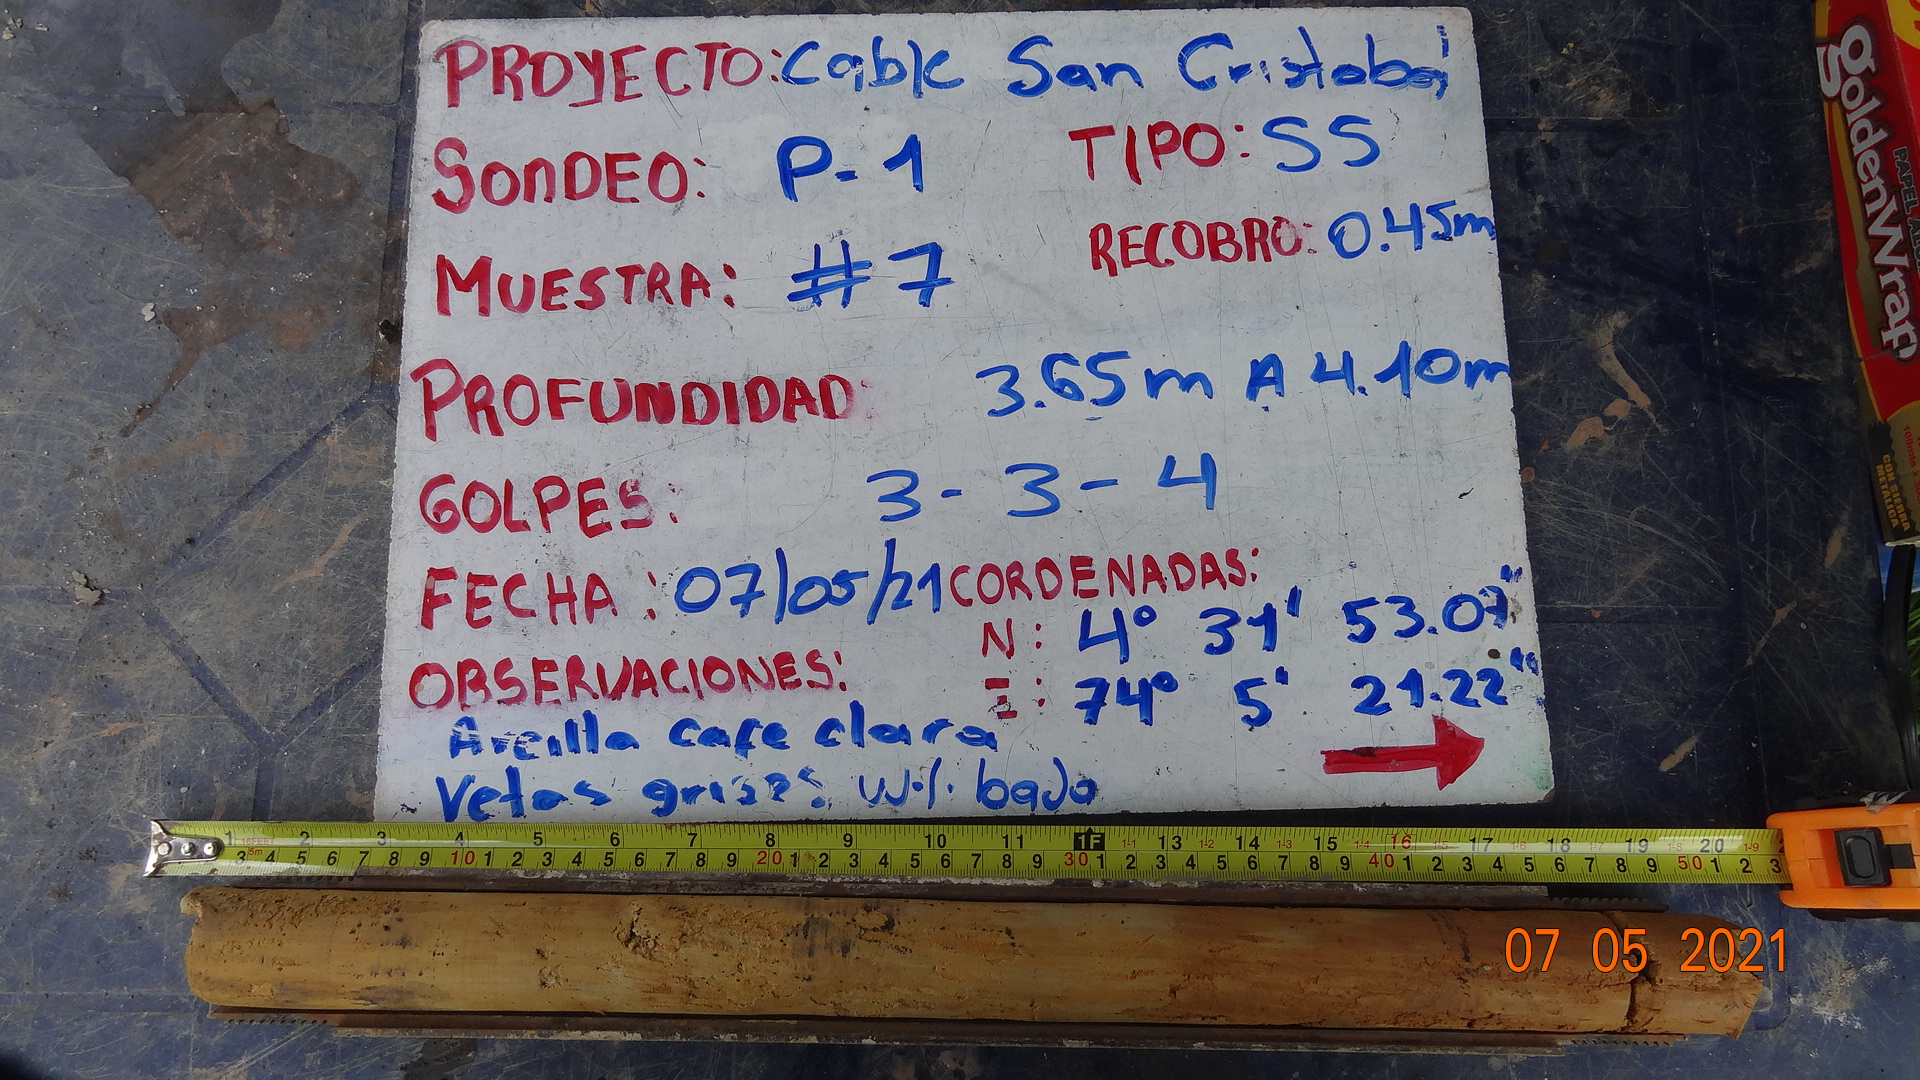 PROYECTO: Cable San Cristobal
SONDEO: P-1 TIPO: SS
MUESTRA: #7 RECOBRO: 0.45m
PROFUNDIDAD: 3.65m A 4.10m
GOLPES: 3-3-4
FECHA: 07/05/21 CORDENADAS:
N: 4° 31' 53.07"
E: 74° 5' 21.22"
OBSERVACIONES:
Arcilla cafe clara
Vetas grises. W.l. bajo
1 2 3 4 5 6 7 8 9 10 11 1F 13 14 15 16 17 18 19 20
3 4 5 6 7 8 9 10 1 2 3 4 5 6 7 8 9 20 1 2 3 4 5 6 7 8 9 30 1 2 3 4 5 6 7 8 9 40 1 2 3 4 5 6 7 8 9 50 1 2 3
goldenWrap
CON SIERRA
METÁLICA
07 05 2021